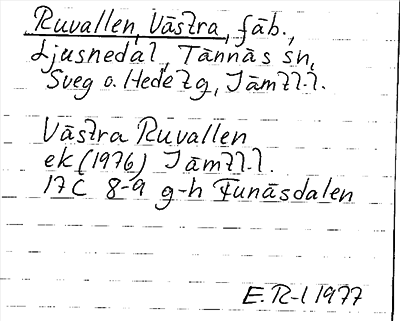 Ruvallen, Västra, fäb.,
Ljusnedal, Tännäs sn,
Sveg o. Hede tg, Jämtl.l.
Västra Ruvallen
ek (1976) Jämtl.l.
17C 8-9 g-h Funäsdalen
E. R-l 1977